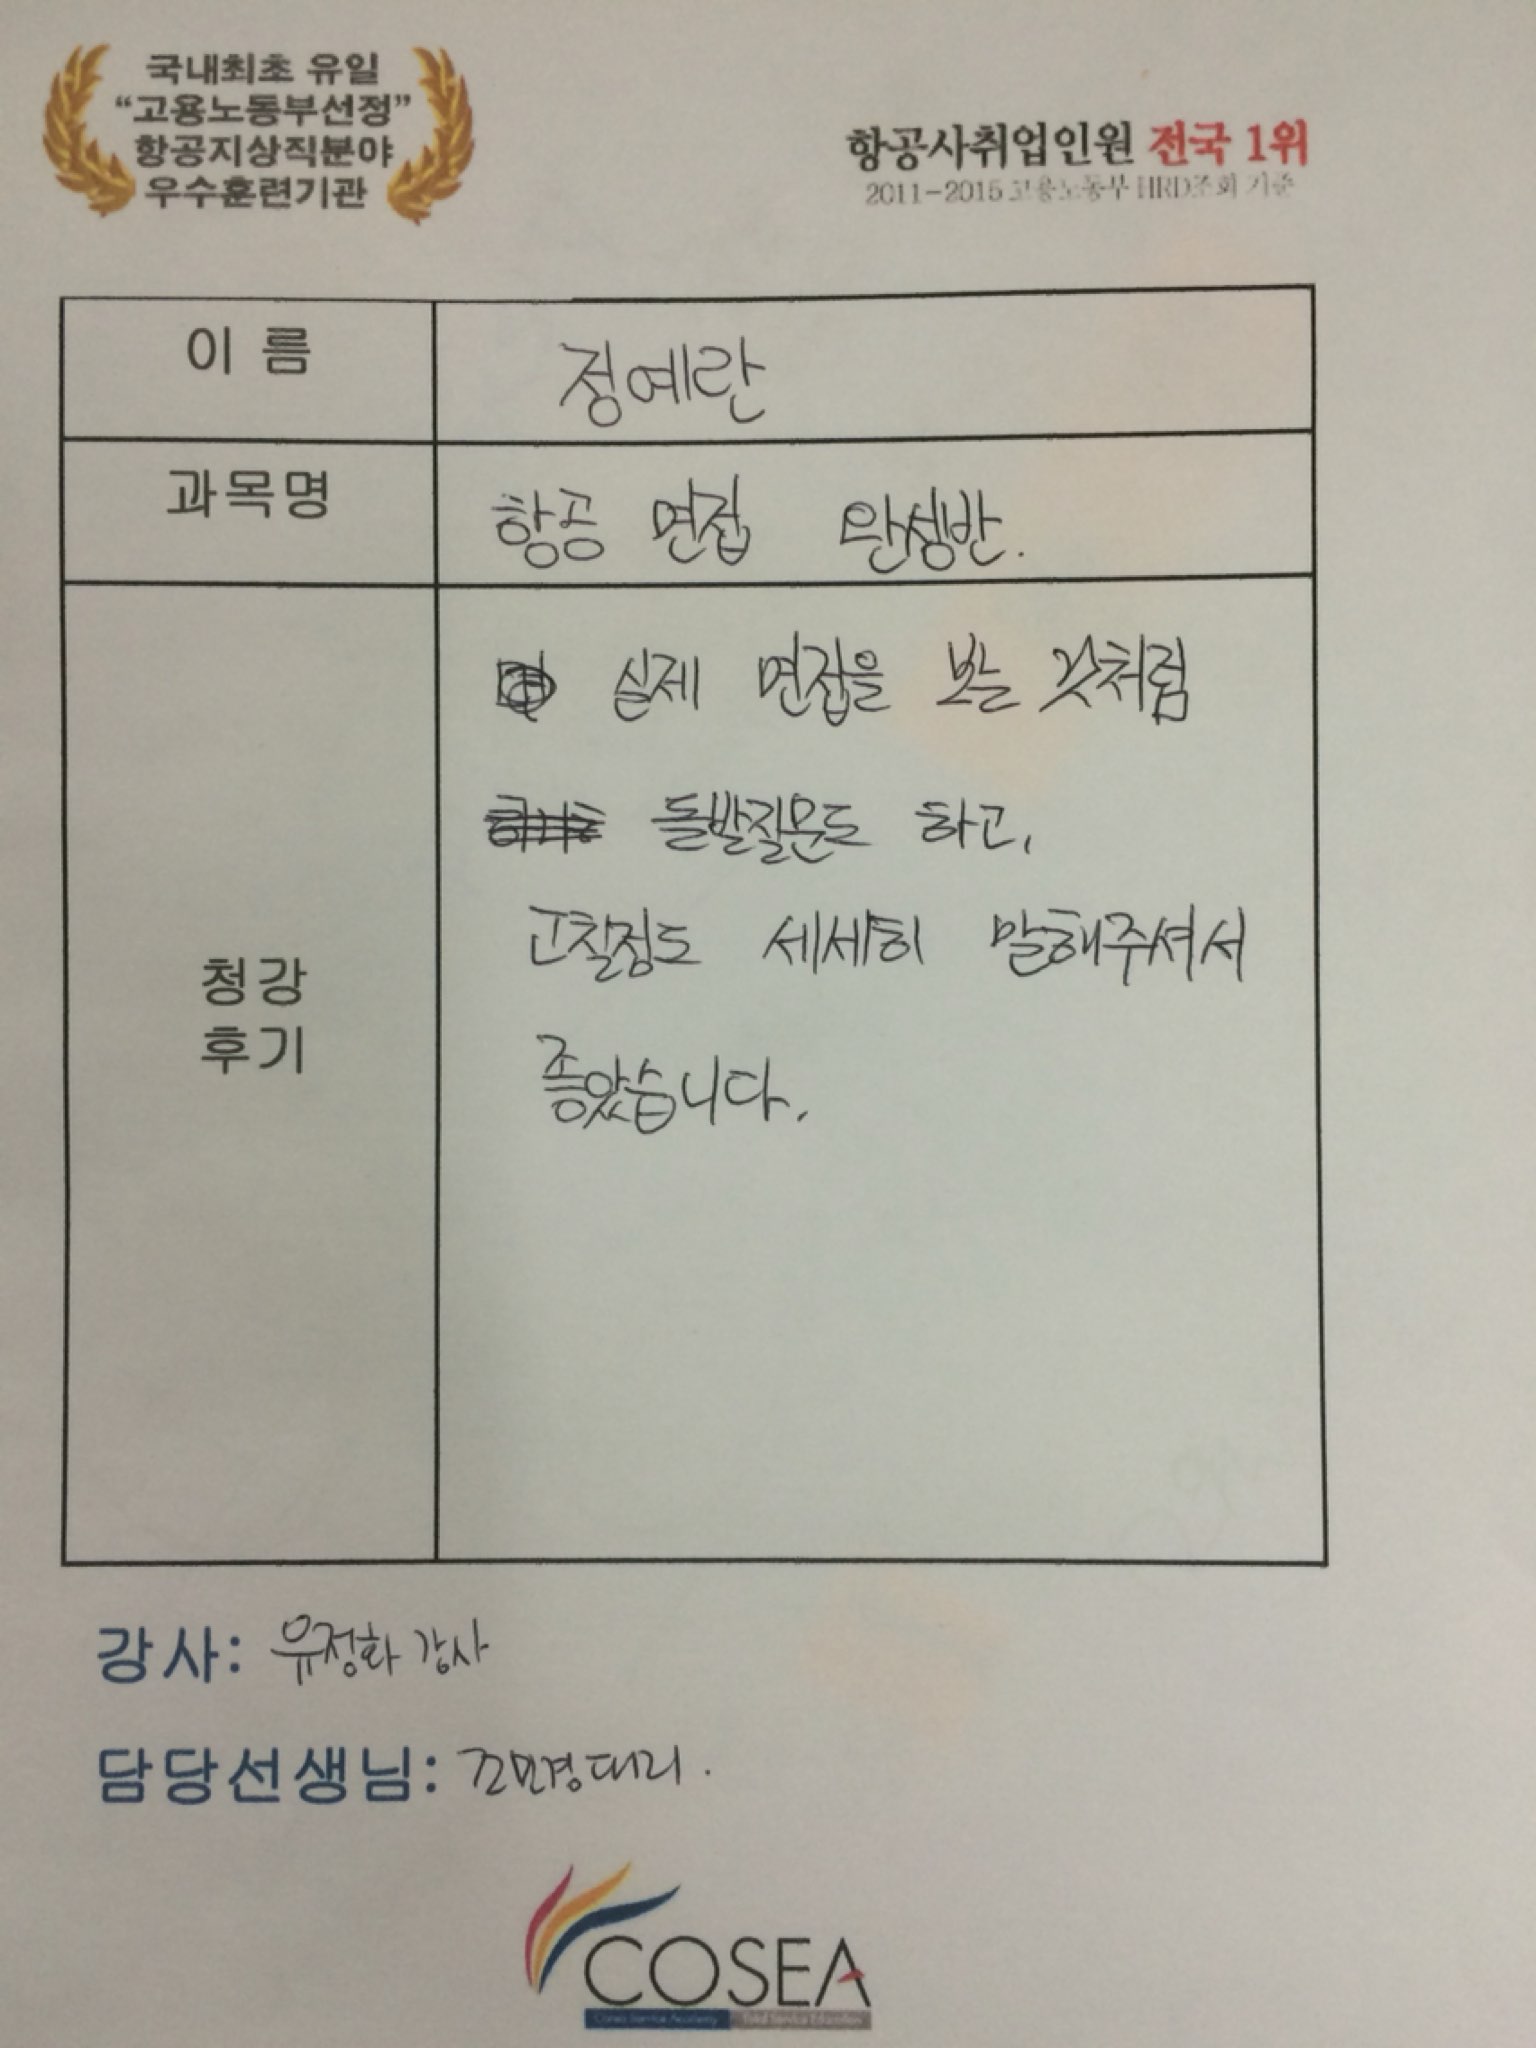 국내최초 유일
“고용노동부선정”
항공지상직분야
우수훈련기관
항공사취업인원 전국 1위
2011-2015 고용노동부 HRD조회 기준
이 름
정예란
과목명
항공 면접 완성반.
청강
후기
실제 면접을 보는 것처럼
돌발질문도 하고,
고칠점도 세세히 말해주셔서
좋았습니다.
강사: 유정화 강사
담당선생님: 조민경대리.
COSEA
Cosea Service Academy Total Service Education